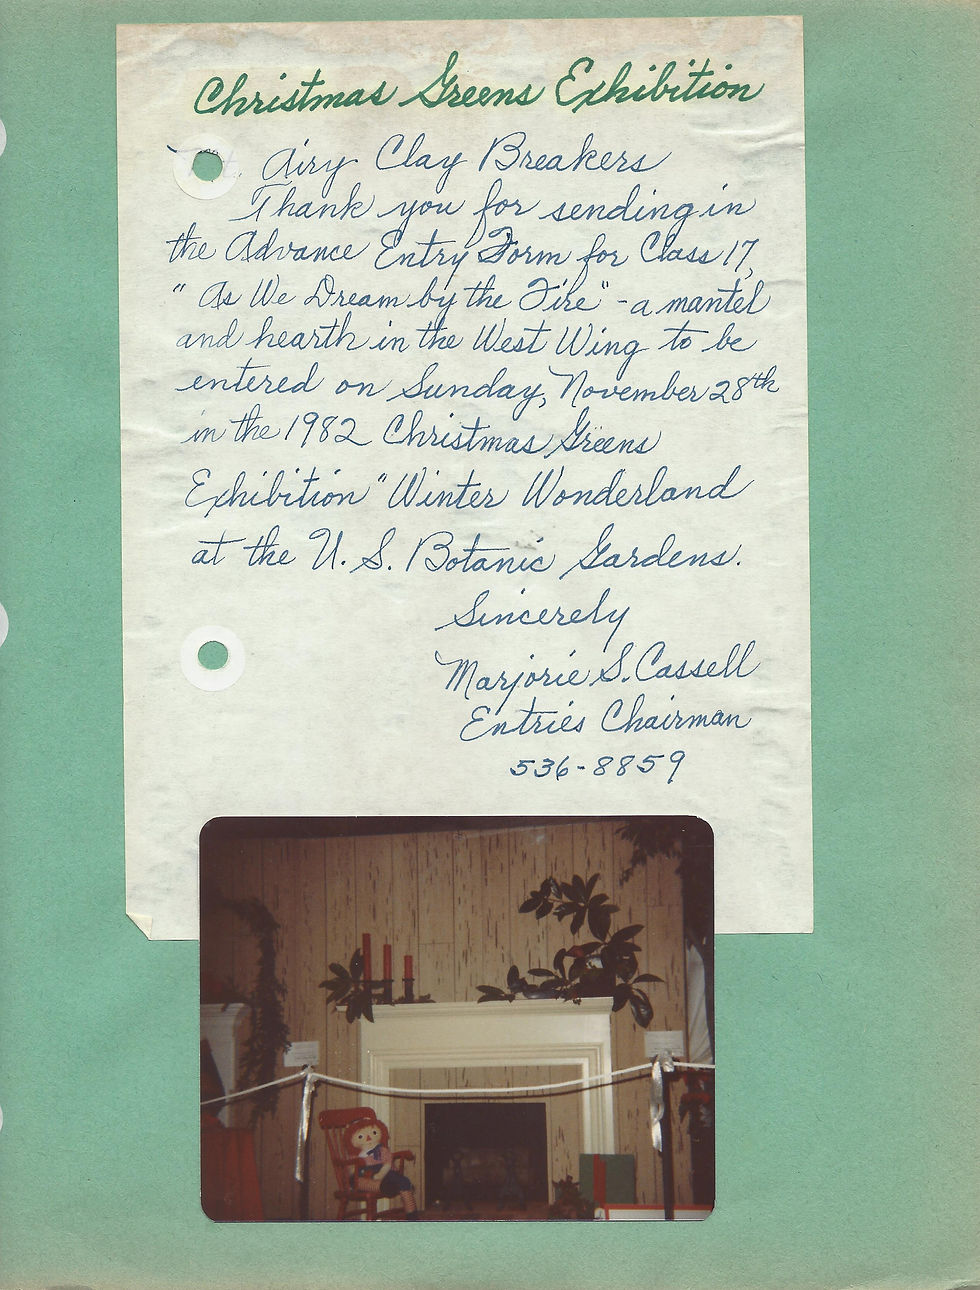 Christmas Greens Exhibition
Mt. Airy Clay Breakers
Thank you for sending in
the Advance Entry Form for Class 17,
"As We Dream by the Fire" - a mantel
and hearth in the West Wing to be
entered on Sunday, November 28th
in the 1982 Christmas Greens
Exhibition "Winter Wonderland
at the U. S. Botanic Gardens.
Sincerely
Marjorie S. Cassell
Entries Chairman
536-8859